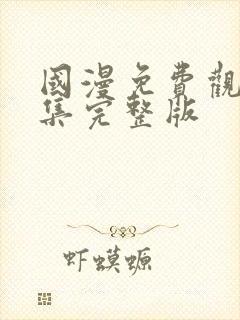 國漫免費觀
集完整版
虾蟆螈